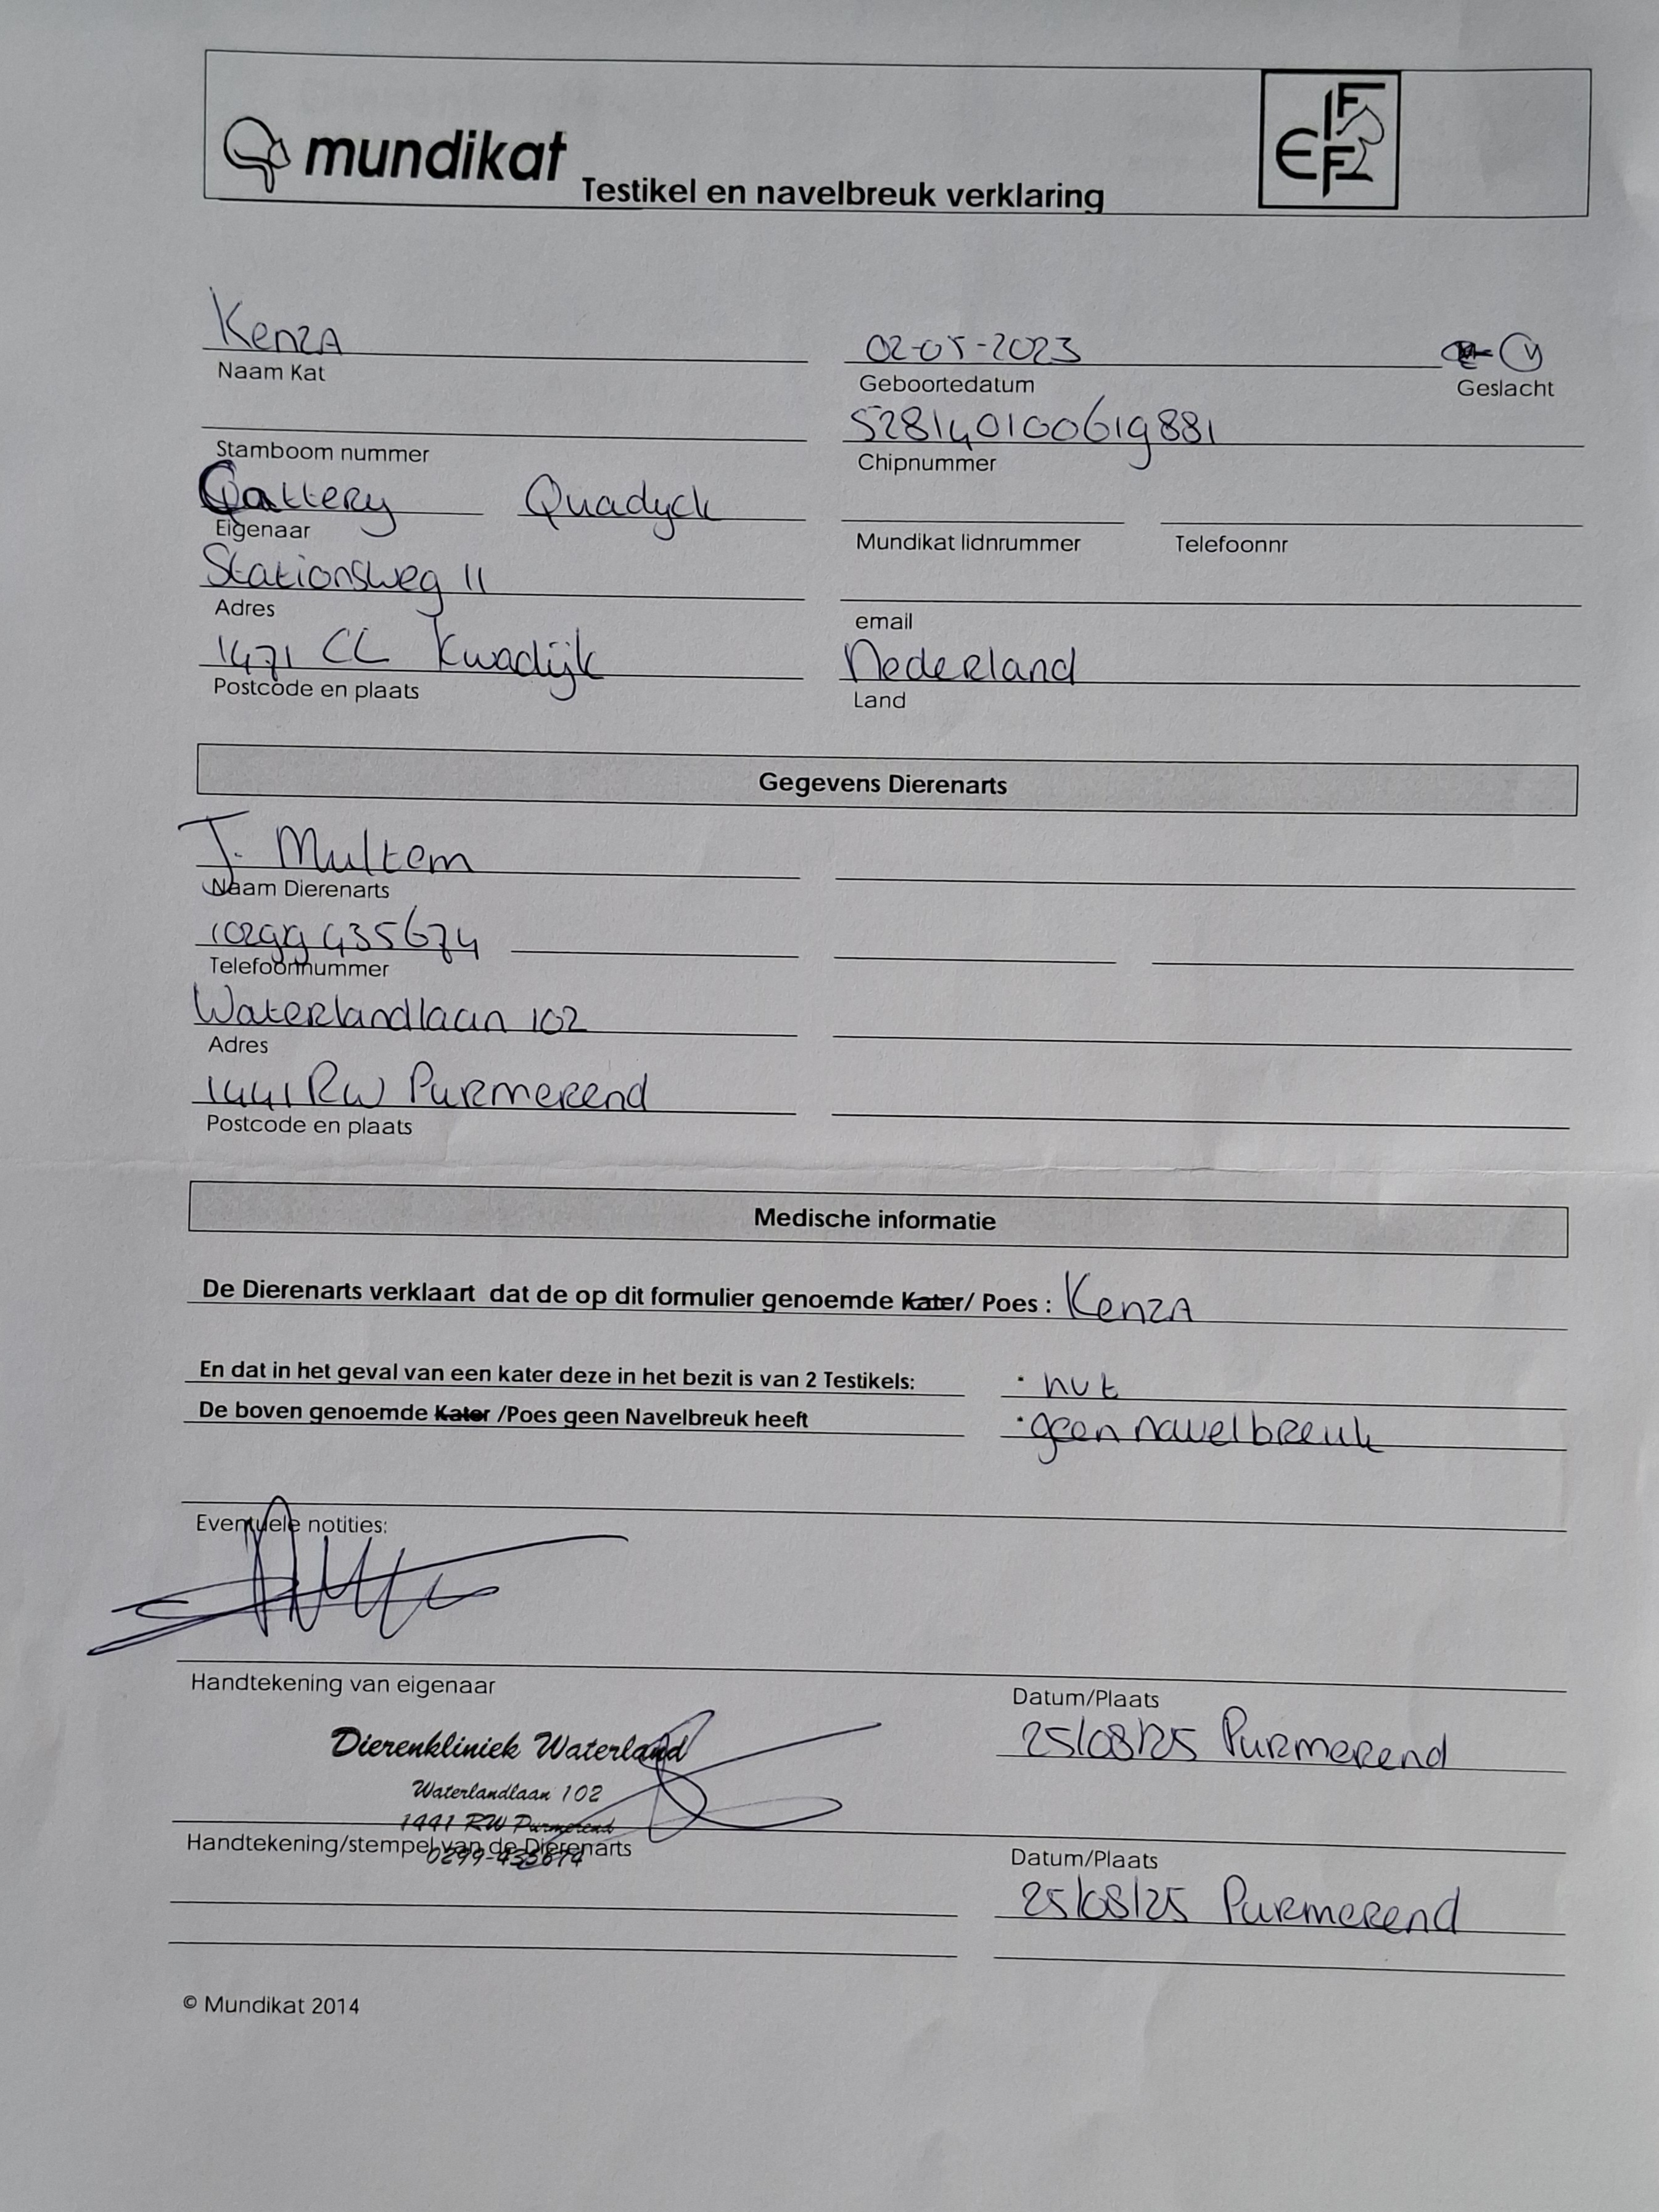 mundikat
Testikel en navelbreuk verklaring
FIFE
Kenza
02-05-2023
V
Naam Kat
Geboortedatum
Geslacht
528140100619881
Stamboom nummer
Chipnummer
Cattery Quadyck
Eigenaar
Mundikat lidnrummer
Telefoonnr
Stationsweg 11
Adres
email
1471 CL Kwadijk
Nederland
Postcode en plaats
Land
Gegevens Dierenarts
J. Multem
Naam Dierenarts
0299 435674
Telefoonnummer
Waterlandlaan 102
Adres
1441 RW Purmerend
Postcode en plaats
Medische informatie
De Dierenarts verklaart dat de op dit formulier genoemde Kater/ Poes : Kenza
En dat in het geval van een kater deze in het bezit is van 2 Testikels: · nvt
De boven genoemde Kater /Poes geen Navelbreuk heeft · geen navelbreuk
Eventuele notities:
Handtekening van eigenaar
Datum/Plaats
25/08/25 Purmerend
Dierenkliniek Waterland
Waterlandlaan 102
1441 RW Purmerend
0299-435674
Handtekening/stempel van de Dierenarts
Datum/Plaats
25/08/25 Purmerend
© Mundikat 2014